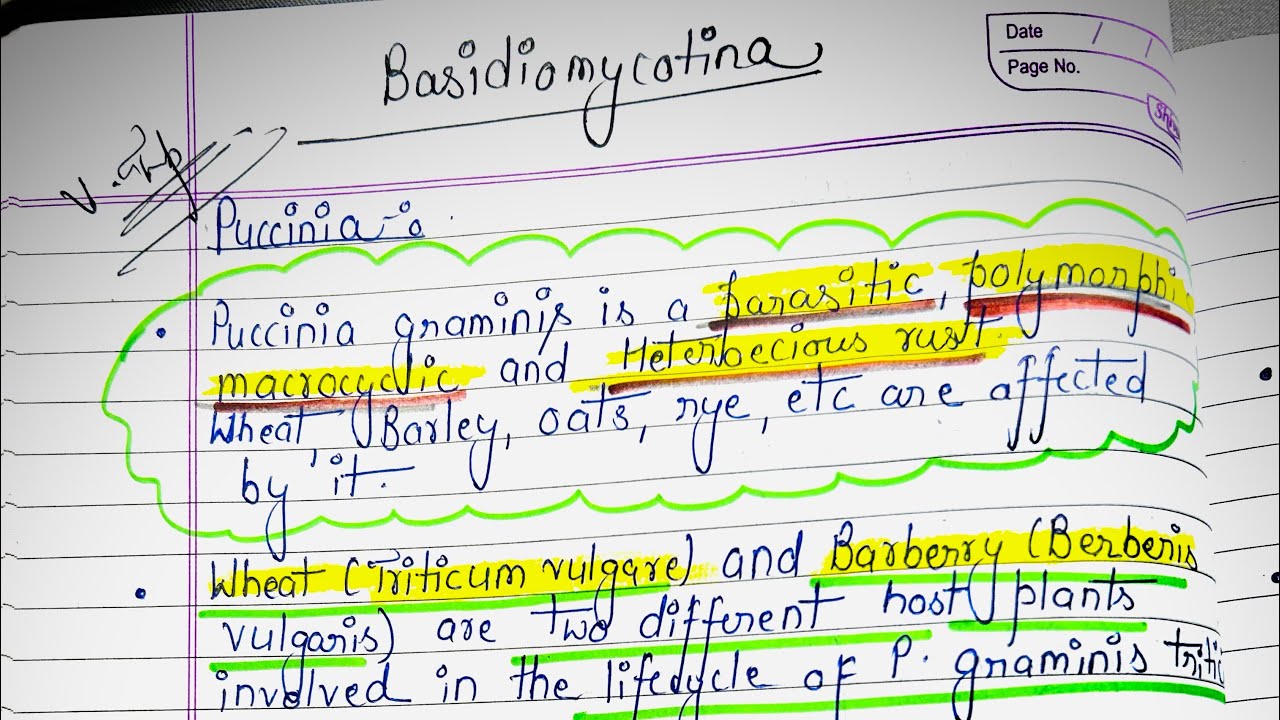 Basidiomycotina
Date / /
Page No.
V. Imp
Puccinia -:
• Puccinia graminis is a parasitic, polymorphi
macrocyclic and Heteroecious rust.
Wheat, Barley, oats, rye, etc are affected
by it.
• Wheat (Triticum vulgare) and Barberry (Berberis
vulgaris) are two different host plants
involved in the lifecycle of P. graminis tritic